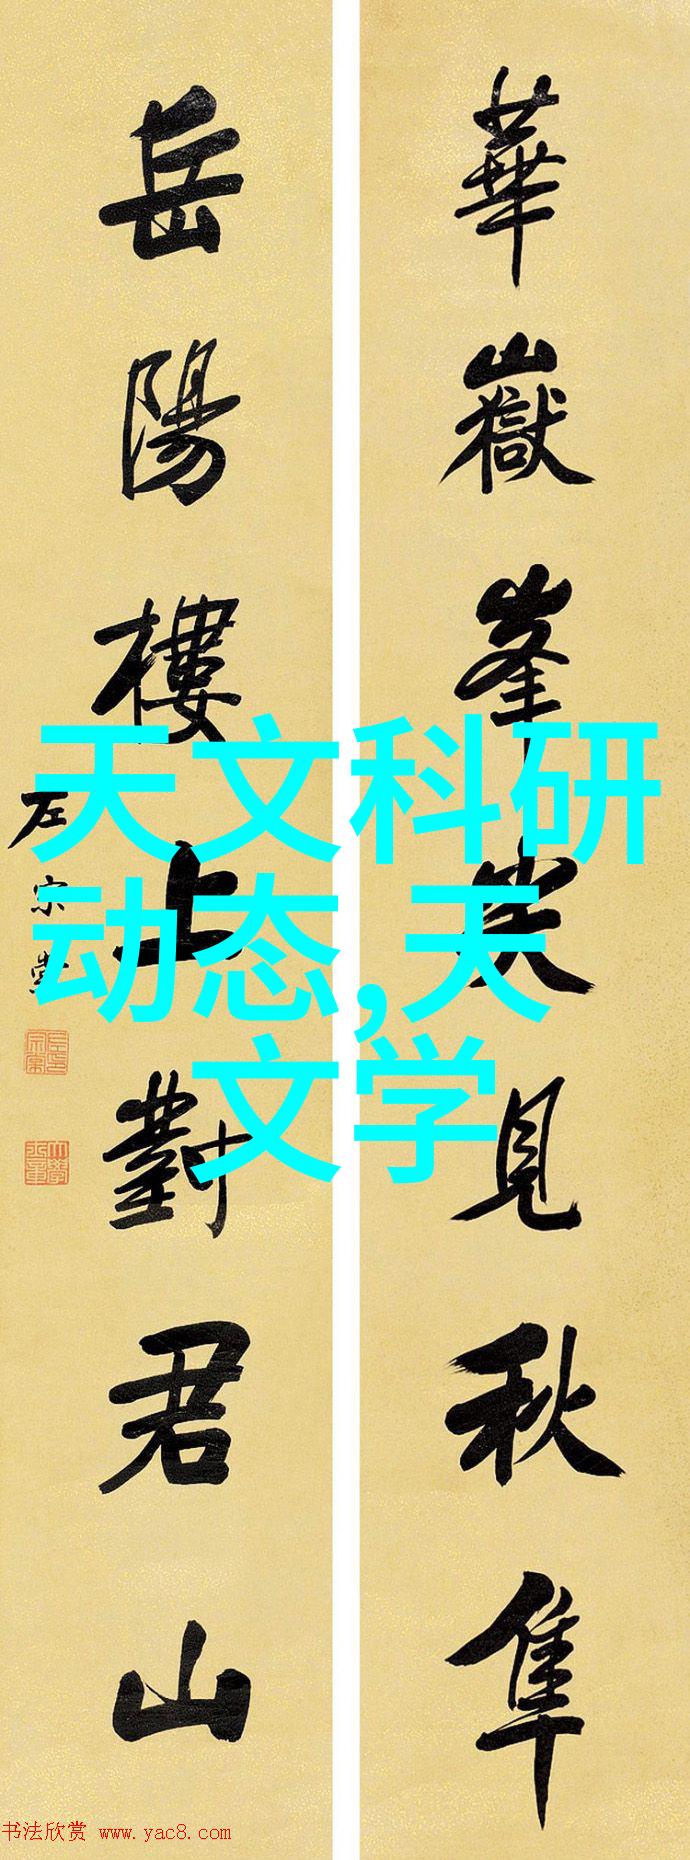 華嶽峯尖見秋隼
岳陽樓上對君山
左宗棠
天文科研
动态,天
文学
书法欣赏 www.yac8.com